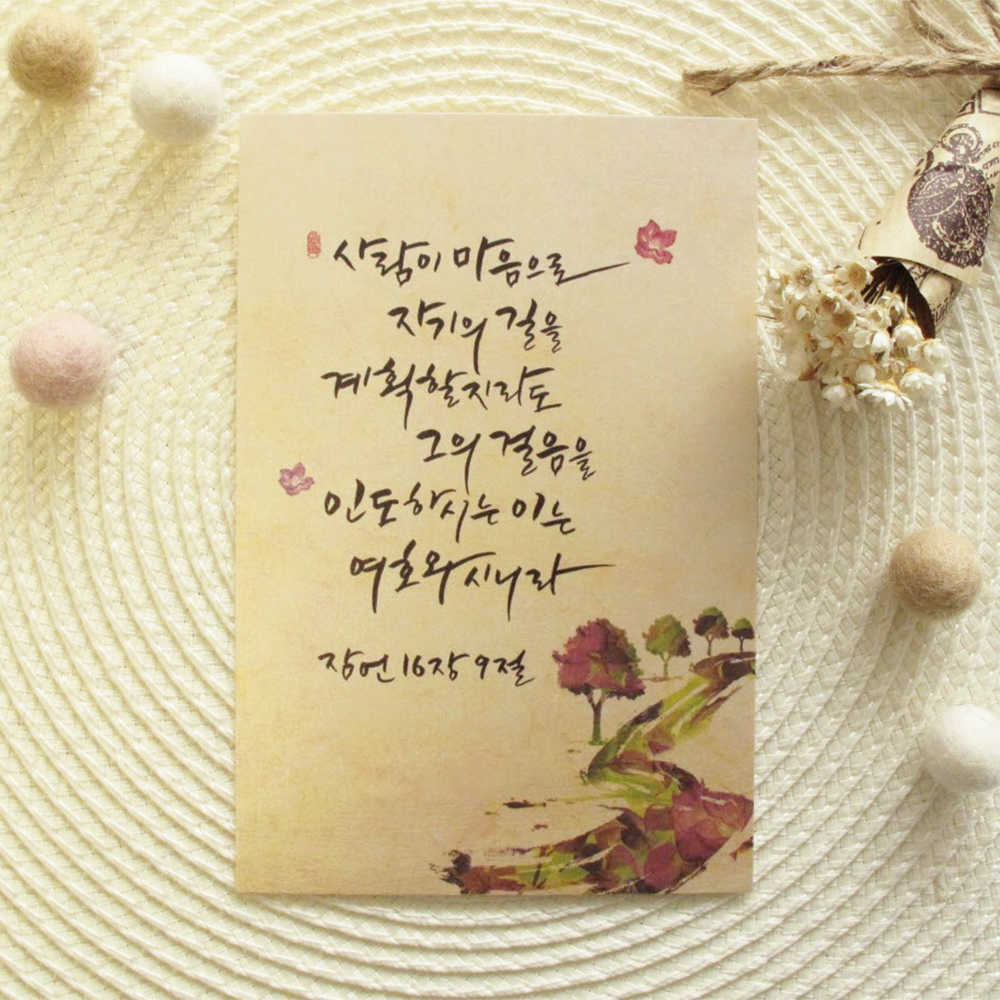 사람이 마음으로
자기의 길을
계획할지라도
그의 걸음을
인도하시는 이는
여호와시니라
잠언 16장 9절